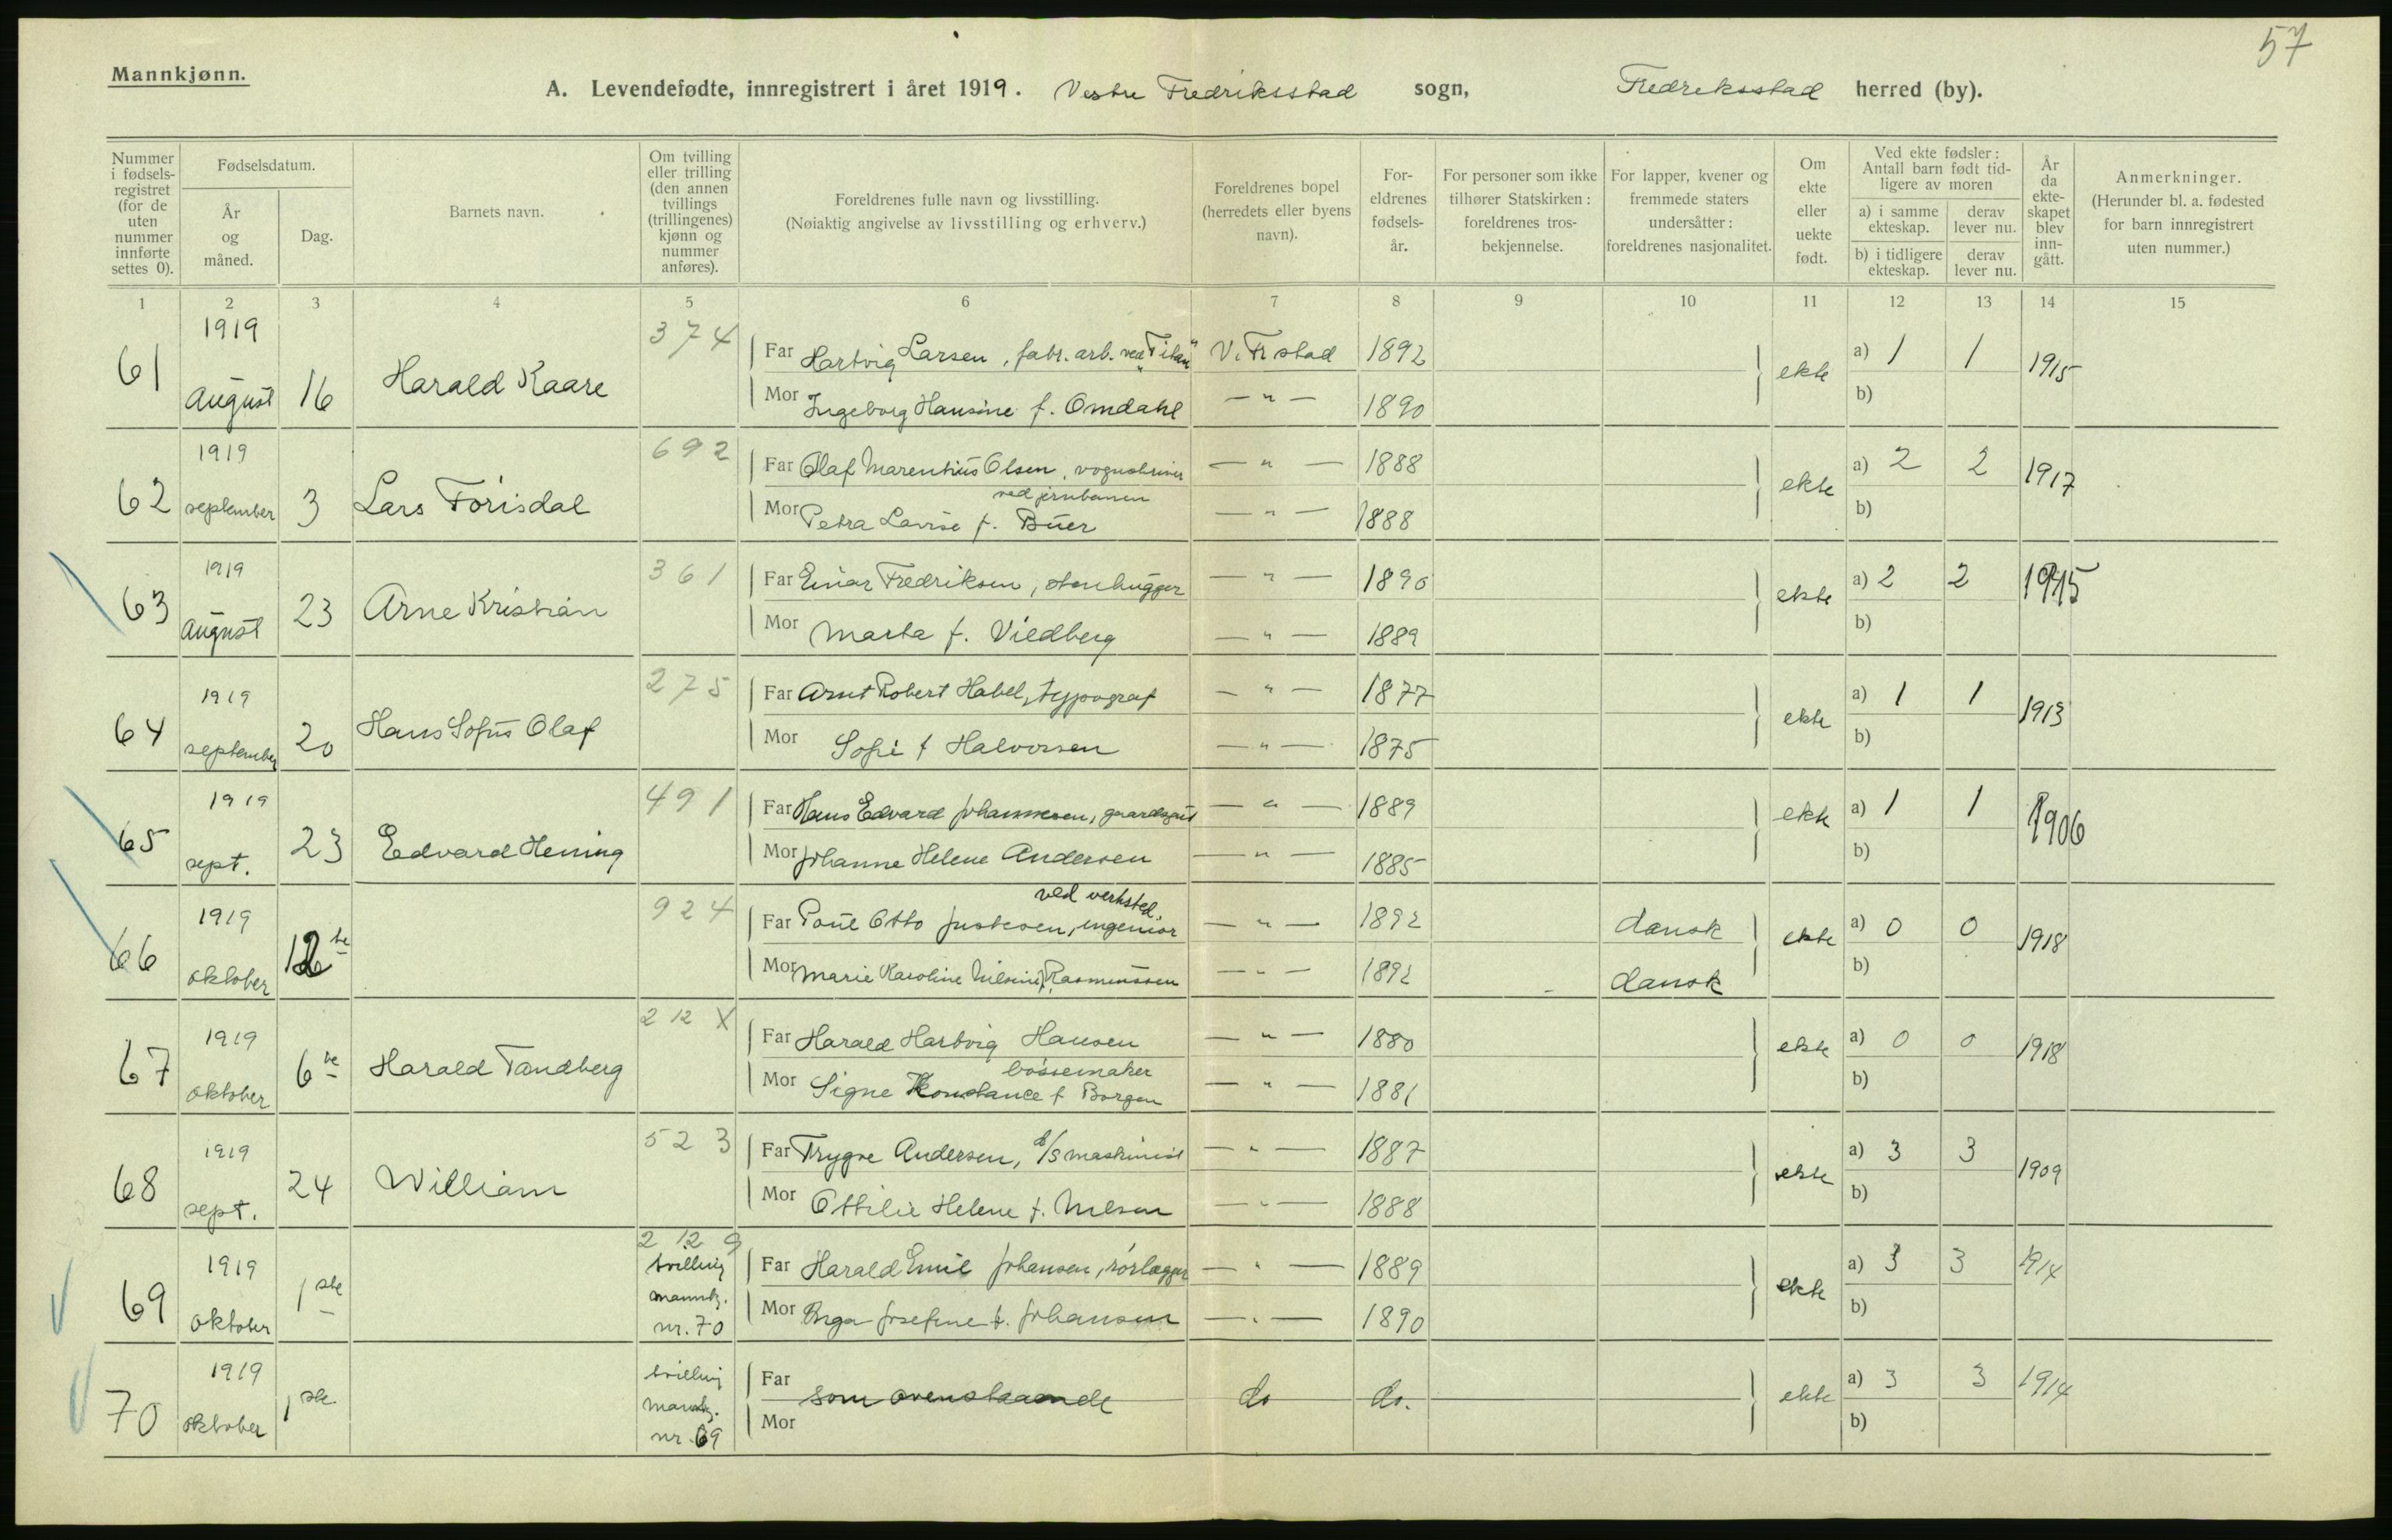 57
Mannkjønn.
A. Levendefødte, innregistrert i året 1919. Vestre Fredriksstad sogn, Fredreksstad herred (by).
Nummer i fødsels- registret (for de uten nummer innførte settes 0).
Fødselsdatum.
År og måned.
Dag.
Barnets navn.
Om tvilling eller trilling (den annen tvillings (trillingenes) kjønn og nummer anføres).
Foreldrenes fulle navn og livsstilling.
(Nøiaktig angivelse av livsstilling og erhverv.)
Foreldrenes bopel (herredets eller byens navn).
For- eldrenes fødsels- år.
For personer som ikke tilhører Statskirken: foreldrenes tros- bekjennelse.
For lapper, kvener og fremmede staters undersåtter: foreldrenes nasjonalitet.
Om ekte eller uekte født.
Ved ekte fødsler: Antall barn født tid- ligere av moren
a) i samme ekteskap. derav lever nu.
b) i tidligere ekteskap. derav lever nu.
År da ekte- skapet blev inn- gått.
Anmerkninger.
(Herunder bl. a. fødested for barn innregistrert uten nummer.)
1 2 3 4 5 6 7 8 9 10 11 12 13 14 15
61 1919 August 16 Harald Kaare 374
Far Hartvig Larsen, fabr. arb. ved "Titan" V. Fr stad 1892 ekte a) 1 1 1915
Mor Ingeborg Hansine f. Omdahl — " — 1890 b)
62 1919 september 3 Lars Torisdal 692
Far Olaf Marentius Olsen, vognskriver — " — 1888 ekte a) 2 2 1917
ved jernbanen
Mor Petra Lovise f. Buer — " — 1888 b)
63 1919 August 23 Arne Kristian 361
Far Einar Fredriksen, stenhugger — " — 1890 ekte a) 2 2 1915
Mor Marta f. Viedberg — " — 1889 b)
64 1919 september 20 Hans Sofus Olaf 275
Far Arnt Robert Habel, typograf — " — 1877 ekte a) 1 1 1913
Mor Sofie f Halvorsen — " — 1875 b)
65 1919 sept. 23 Edvard Hening 491
Far Hans Edvard Johannesen, gaardsgut — " — 1889 ekte a) 1 1 1906
Mor Johanne Helene Andersen — " — 1885 b)
66 1919 oktober 12te 924
ved verksted.
Far Poul Otto Justesen, ingeniør — " — 1892 dansk ekte a) 0 0 1918
Mor Marie Karoline Nilsine f. Rasmussen — " — 1892 dansk b)
67 1919 oktober 6te Harald Tandberg 2 12 X
Far Harald Hartvig Hansen — " — 1880 ekte a) 0 0 1918
bøssemaker
Mor Signe Konstance f Borgen — " — 1881 b)
68 1919 sept. 24 William 523
Far Trygve Andersen, d/s maskinist — " — 1887 ekte a) 3 3 1909
Mor Ottilie Helene f. Nilsen — " — 1888 b)
69 1919 oktober 1ste 2 12 9 tvilling mannkj. nr. 70
Far Harald Emil Johansen, rørlægger — " — 1889 ekte a) 3 3 1914
Mor Inga Josefine f. Johansen — " — 1890 b)
70 1919 oktober 1ste tvilling mannkj. nr. 69
Far som ovenstaaende do do. ekte a) 3 3 1914
Mor b)